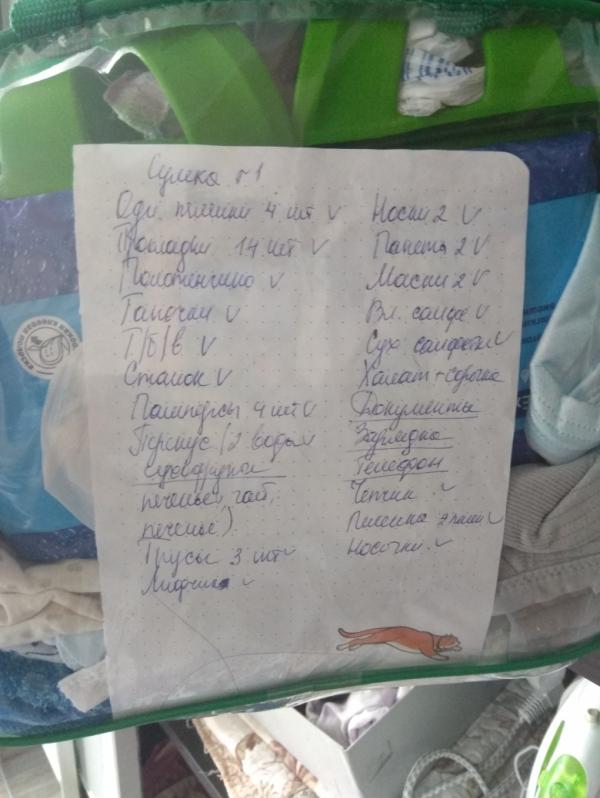 Сумка №1
Одн. пелёнки 4 шт ✓
Прокладки 14 шт ✓
Полотенчико ✓
Тапочки ✓
Т/б/в ✓
Станок ✓
Памперсы 4 шт ✓
Перекус (2 воды ✓
сухофрукты
печенье, гот,
печенье)
Трусы 3 шт ✓
Лифчик ✓
Носки 2 ✓
Пакеты 2 ✓
Маски 2 ✓
Вл. салфе ✓
Сух салфетки ✓
Халат + сорочка
Документы
Зарядка
Телефон
Чепчик ✓
Пеленка ✓
Носочки ✓